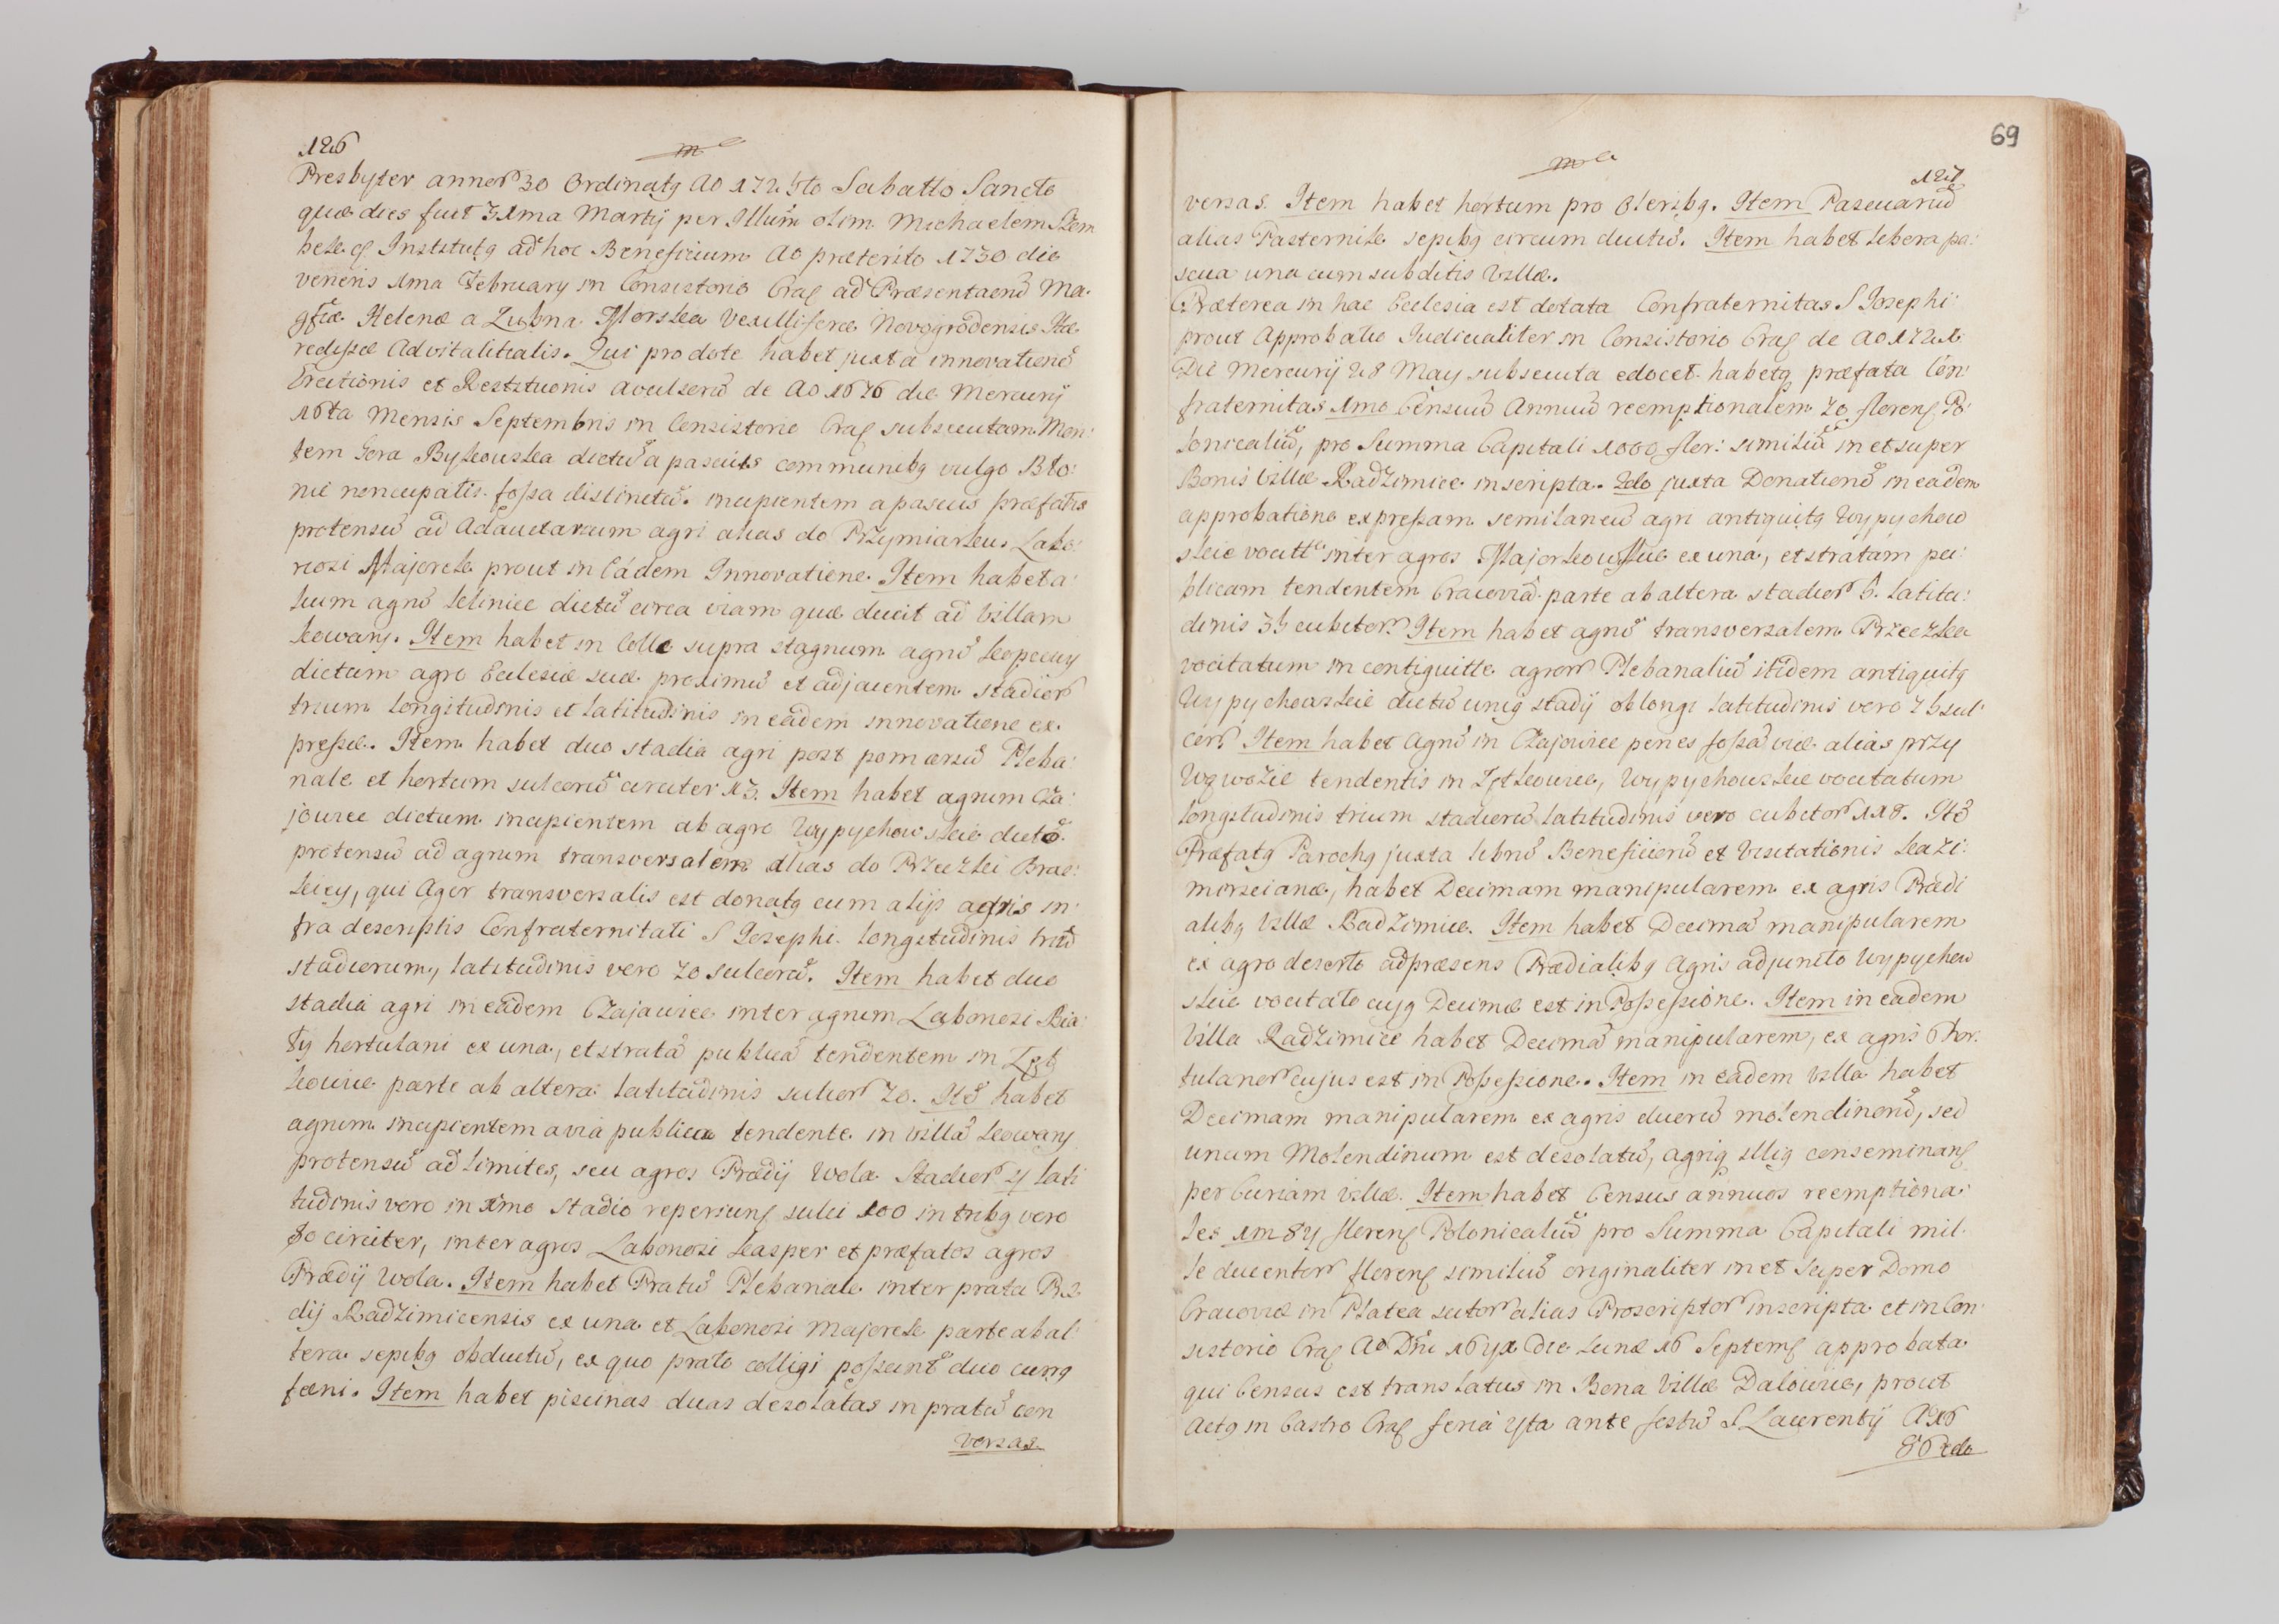 126
Presbyter annor 30 Ordinatq Ao 1725to Sabatto Sancto
quæ dies fuit 31ma Martij per Illum olim Michaelem Szem
bek q Institutq ad hoc Beneficium Ao præterito 1730 die
veneris 1ma February in Consistorio Crac ad Præsentaenu Ma.
gfiæ Helenæ a Zubna Morska Vexilliferæ Novogrodensis Hæ
redissæ Advitalitialis. Qui pro dote habet juxta innovationē
Erectionis et Restitutionis avulsorū de Ao 1676 die Mercurij
16ta Mensis Septembris in Consistorio Crac subsecutam Mon:
tem Gora Bylkowska dictū a pascuis communibq vulgo Bło:
nie noncupatis fossa distinctū. incipientem a pascuis præfatis
protensū ad Adauctarium agri alias do Przymiarku Labo:
riosi Majorek prout in Eádem Innovatione. Item habet a:
lium agrū kliniec dictū circa viam quæ ducit ad Villam
kowary. Item habet in Colle supra stagnum agrū kopciuy
dictum agro Ecclesiæ suæ proximū et adjacentem stadior
trium longitudinis et latitudinis in eádem innovatione ex.
pressæ. Item habet duo stadia agri post pomæriū Pleba:
nale et hortum sulcorū circiter 13. Item habet agnum Cza:
jowice dictum incipientem ab agro Wypychowskie dicto
protensū ad agrum transversalem alias do Przeczki Brac:
kiey, qui Ager transversalis est donatq cum alijs agris in:
fra descriptis Confraternitati S Josephi longitudinis triū
stadiorum, latitudinis vero 70 sulcorū. Item habet duo
stadia agri in eádem Czajowice inter agrum Laboriosi Bia:
ły hortulani ex una, et stratā publicā tendentem in
kowice parte ab altera latitudinis sulcor 70. Itē habet
agrum incipientem a via publica tendente in villā kowary
protensū ad limites, seu agros Prædij Wola Stadior 4 lati
tudinis vero in 1mo Stadio reperiunt sulci 100 in tribq vero
80 circiter, inter agros Laboriosi kasper et præfatos agros
Prædij Wola. Item habet Pratū Plebanale inter prata Præ
dij Radzimicensis ex una et Laboriosi Majorek parte ab al:
tera sepibq obductū, ex quo prato colligi possunt duo currq
fæni. Item habet piscinas duas desolatas in pratū con
versas.
69
127
versas. Item habet hortum pro Oleribq. Item Pascuariū
alias Pasternik sepibq circumductū. Item habet libera pa:
scua una cum subditis Villæ.
Præterea in hac Ecclesia est dotata Confraternitas S Josephi
prout Approbatio Iudicialiter in Consistorio Crac de Ao
Die Mercurij 28 May subsecuta edocet. habetq præfata Con:
fraternitas 1mo Censuū Annuū reemptionalem 70 floren Po:
lonicaliū, pro Summa Capitali 1000 flor: similiū in et super
Bonis Villæ Radzimice inscripta. 2do juxta Donationē in eādem
approbatione expressam semilaneū agri antiquitq Wypychow
skie vocitt inter agros Majorkowskie ex una, et stratam pu:
blicam tendentem Cracoviā parte ab altera stadior 6. latitu:
dinis 35 cubitor. Item habet agrū transversalem Przeczka
vocitatum in contiguitte agror Plebanaliū itidem antiquitq
Wypychowskie dictū uniq stadij oblongi latitudinis vero 75 sul:
cor. Item habet Agrū in Czajowice penes fossā viæ alias przy
Wąwozie tendentis in kowice, Wypychowskie vocitatum
longitudinis trium stadiorū latitudinis vero cubitor 118. Itē
Præfatq Parochq juxta librū Beneficiorū et Visitationis kazi:
morscianæ, habet Decimam manipularem ex agris Prædi
alibq Villæ Radzimice. Item habet Decimā manipularem
ex agro deserto ad præsens Prædialibq Agris adjuncto Wypychow
skie vocitato cujq Decimæ est in Possessione. Item in eadem
Villa Radzimice habet Decimā manipularem, ex agris 6 hor.
tulanor cujus est in Possessione. Item in eadem Villa habet
Decimam manipularem ex agris duorū molendinorū, sed
unum Molendinum est desolatū, agriq illiq conseminant
per Curiam Villæ. Item habet Census annuos reemptiona:
les 1m 84 floren Polonicaliū pro Summa Capitali mil.
le ducentor floren similiū originaliter in et super Domo
Cracoviæ in Platea sutor alias Proscriptor inscripta et in Con:
sistorio Crac Ao Dni die Lunæ 16 Septem approbata
qui Census est translatus in Bona Villæ Dalowice, prout
Actq in Castro Crac feria 4ta ante festū S Laurentij Ao 16
86 2do